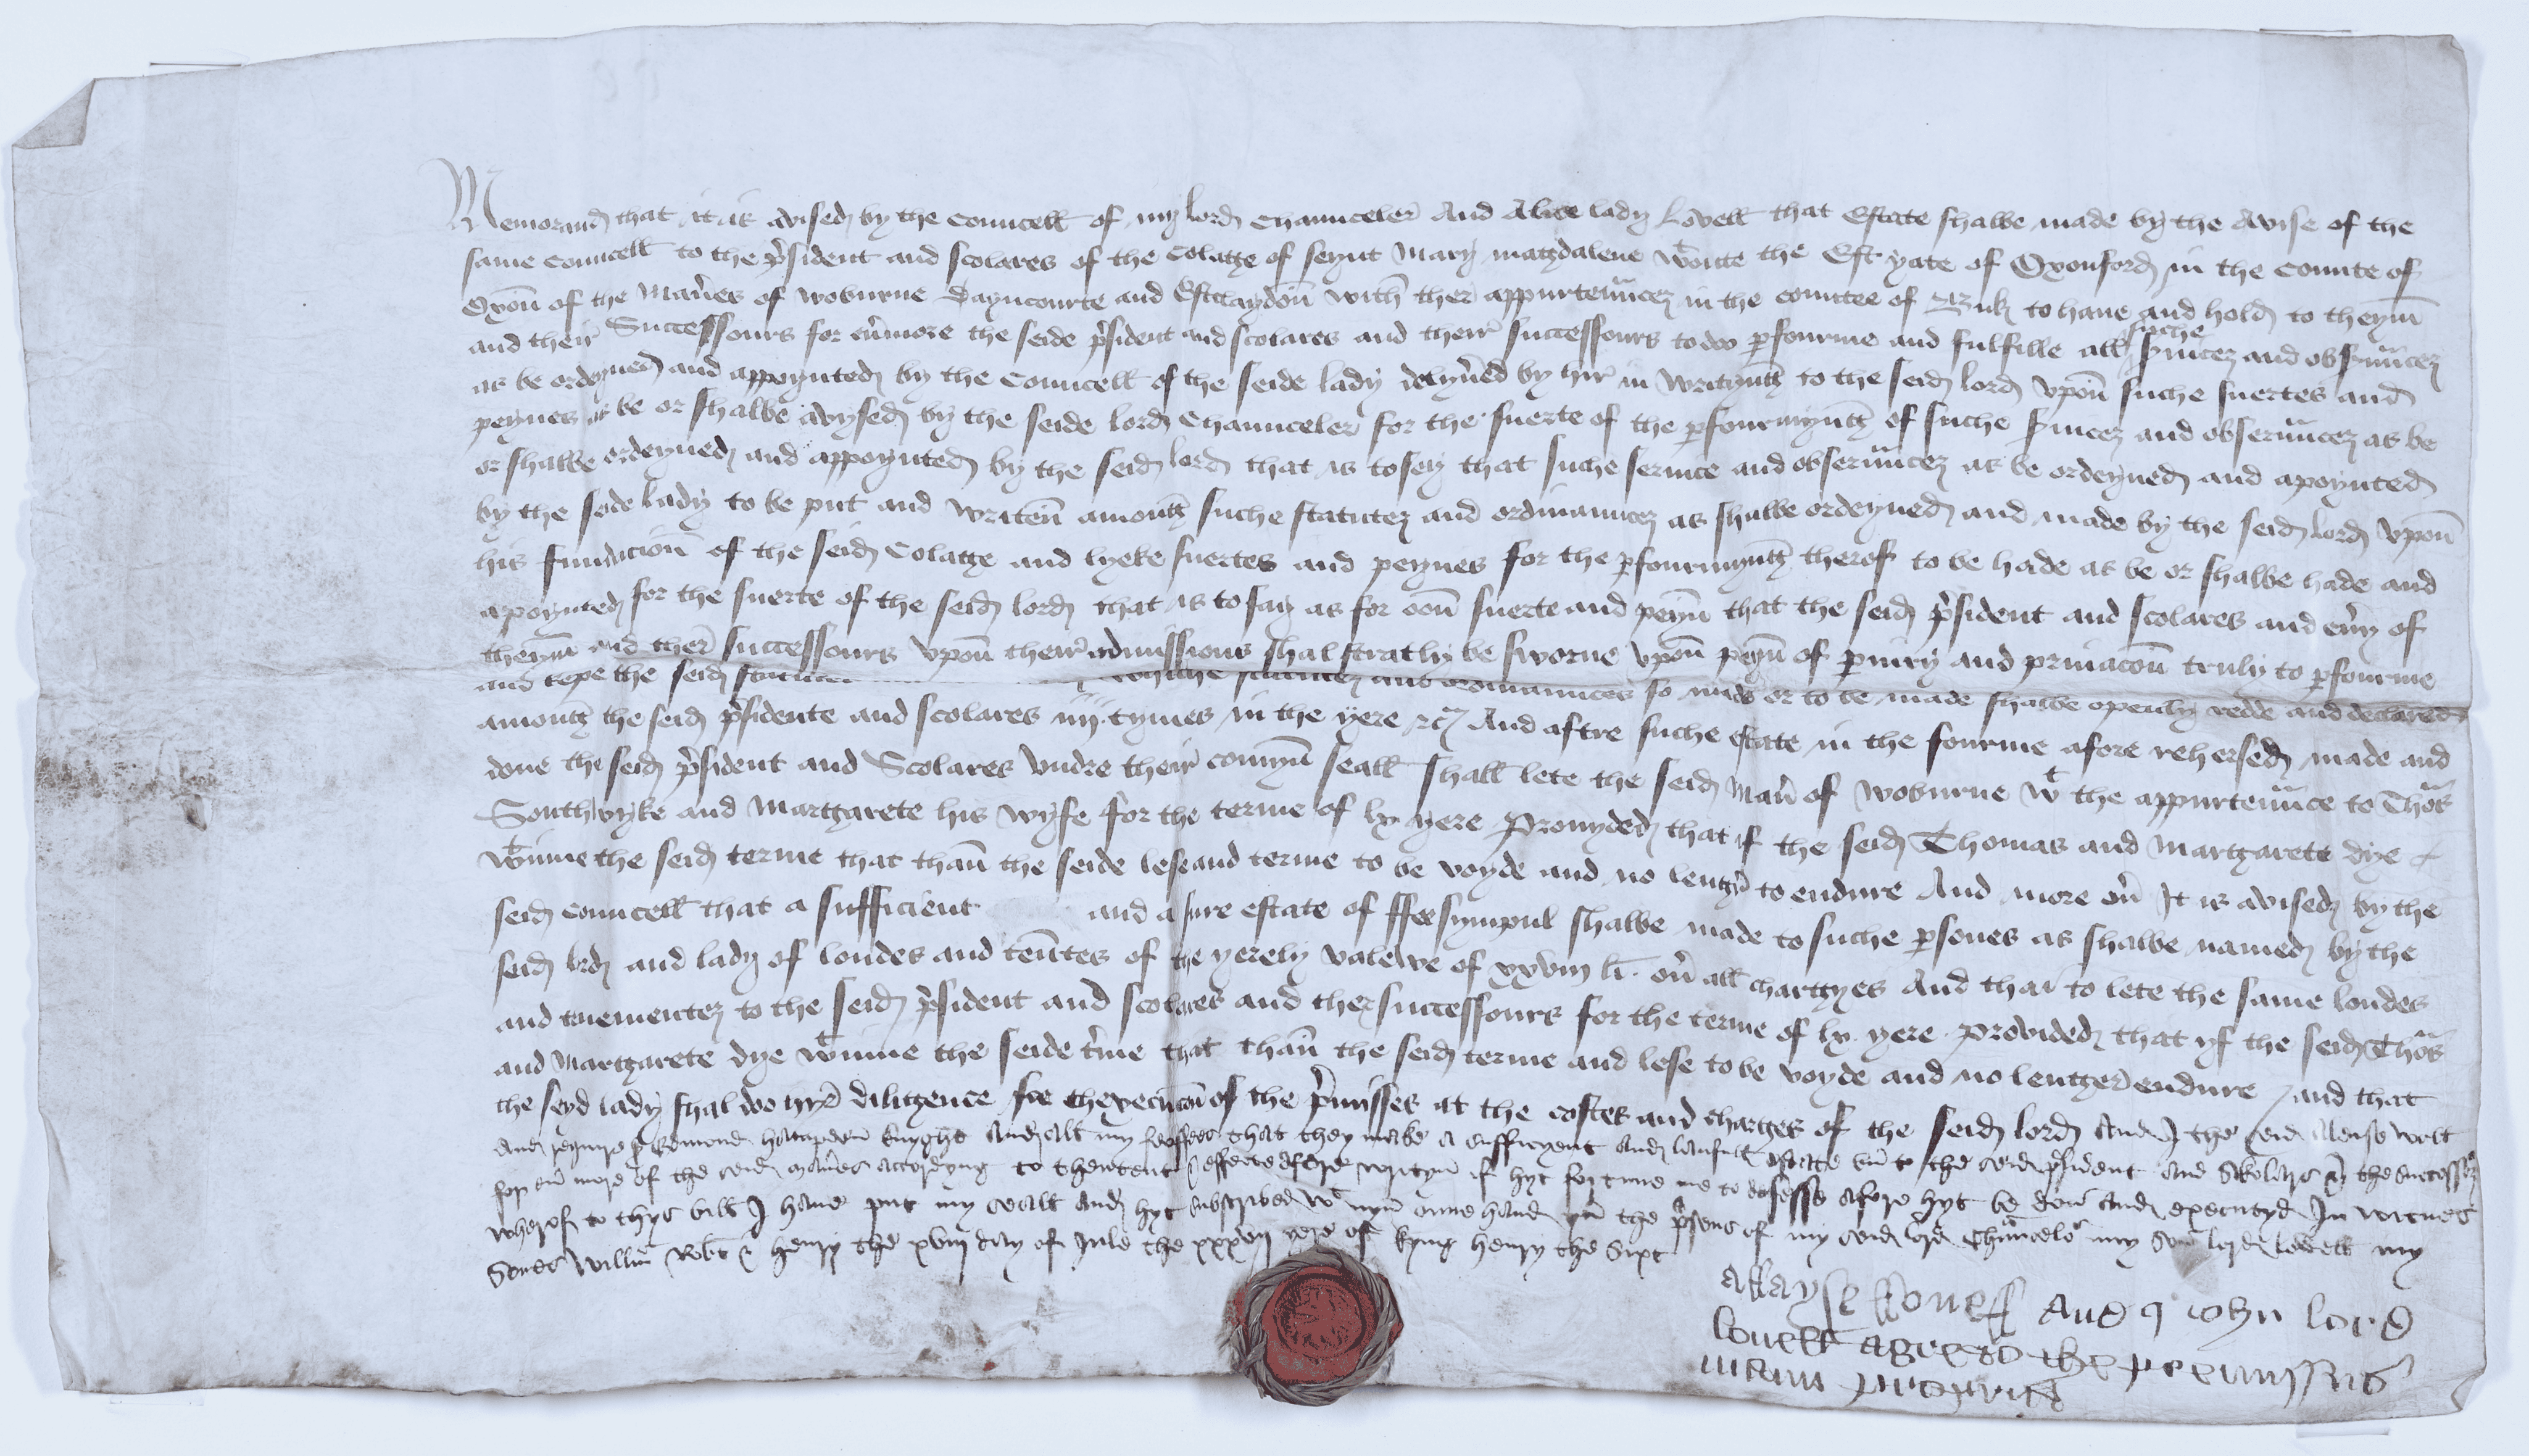 Memorand that it is avised by the Councell of my lord Chaunceler And Alice lady Lovell that Estate shalbe made by the Avise of the
same Councell to the p'sident and scolares of the Colatge of seynt Mary matgdalene wtoute the Est yate of Oxonford in the Counte of
Oxon of the Man'es of Woburne Dayncourte and Estclaydon with ther appurten'ncez in the countee of Buk to have and hold to theym
and their Successours for ev'more the seide p'sident and scolares and their successours to do p'fourme and fulfille all suche s'vicez and obs'u'ncez
as be ordeyned and appoynted by the Councell of the seide lady delyv'ed by hir in Writyntg to the seid lord upon suche suertes and
peynes as be or shalbe avysed by the seide lord Chaunceler for the suerte of the p'fourmyntg of suche s'vicez and obseru'ncez as be
or shalbe ordeyned and appoynted by the seid lord that is to sey that suche seruice and obseru'ncez as be ordeyned and apoynted
by the seide lady to be put and writen amontg suche statutez and ordinauncez as shalbe ordeyned and made by the seid lord upon
his fundacion of the seid Colatge and lyeke suertes and peynes for the p'fourmyntg therof to be hade as be or shalbe hade and
apoynted for the suerte of the seid lord that is to say as for oon suerte and peyn that the seid p'sident and scolares and eu'y of
theym and ther successours upon their admissions shal straitly be sworne upon peyn of p'iury and priuacon truly to p'fourme
and kepe the seid whiche statutez and ordinaunces so made or to be made shalbe openly redde and declared
amontg the seid p'sidente and scolares iiij tymes in the yere &c And aftre suche estate in the fourme afore rehersed made and
done the seid p'sident and Scolares undre their comyn seall shall lete the seid Man' of Woburne wt the appurten'nce to Thom's
Southwyke and Martgarete his wyfe for the terme of lx yere Prouyded that if the seid Thomas and Martgarete dye
wtinne the seid terme that than the seide lese and terme to be voyde and no lentg' to endure And more ou' It is avised by the
seid councell that a sufficient and a sure estate of ffee sympul shalbe made to suche p'sones as shalbe named by the
seid lord and lady of londes and ten'tes of the yerely valewe of xxviij li. ou' all chartges And thai to lete the same londes
and tnementez to the seid p'sident and scolares and ther successours for the terme of lx yere Provided that yf the seid Thom's
and Martgarete dye wtinne the seide t'me that than the seid terme and lese to be voyde and no lentger endure / and that
the seyd lady shal do hyr diligence for thexecucon of the p'misses at the costes and charges of the seid lord And I the seid Aleise woll
and requyre Edmond hampden knyght and all my feoffees that they make a sufficyent and laufull estate un to the seid p'sident and skolars & the successors
for eu' more of the seid man'es accordyng to thentent & effecte afore wrytyn if hyt fortune me to desesse afore hyt be don and executyd In witnes
wherof to thys bill I haue put my seall and hyt subscribed wt myn oune hand yn the p'sens of my seid lord Chaunceler my son lord lovell my
sones Will'm Rob't & henry the xviij day of Jule the xxxvij yere of kyng henry the Sixt
Alayse lovell And I iohn lord
lovell agre to the premyssus
manu propria